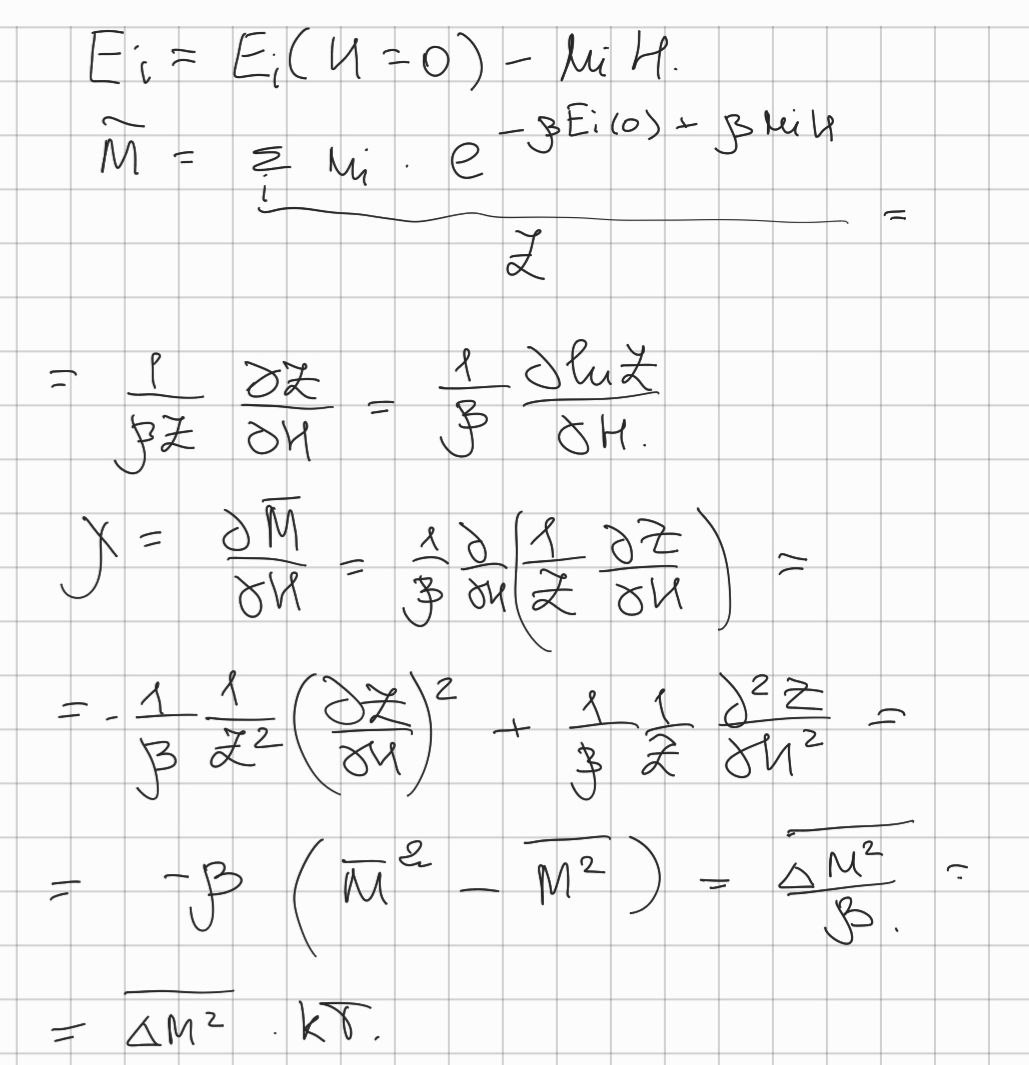 E_i = E_i(H = 0) - M_i H.
\widetilde{M} = \frac{\sum_i M_i \cdot e^{-\beta E_i(0) + \beta M_i H}}{Z} =
= \frac{1}{\beta Z} \frac{\partial Z}{\partial H} = \frac{1}{\beta} \frac{\partial \ln Z}{\partial H}.
\chi = \frac{\partial \overline{M}}{\partial H} = \frac{1}{\beta} \frac{\partial}{\partial H} \left( \frac{1}{Z} \frac{\partial Z}{\partial H} \right) =
= - \frac{1}{\beta} \frac{1}{Z^2} \left( \frac{\partial Z}{\partial H} \right)^2 + \frac{1}{\beta} \frac{1}{Z} \frac{\partial^2 Z}{\partial H^2} =
= -\beta \left( \overline{M}^2 - \overline{M^2} \right) = \frac{\overline{\Delta M^2}}{\beta}. =
= \overline{\Delta M^2} \cdot kT.